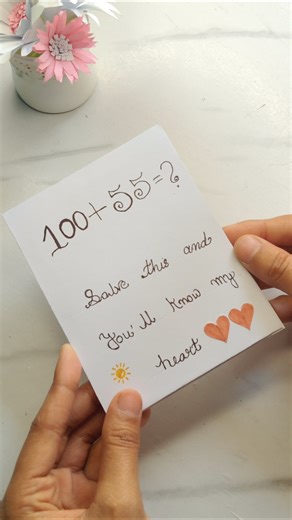 100+55=?
Solve this and
You'll know my
heart